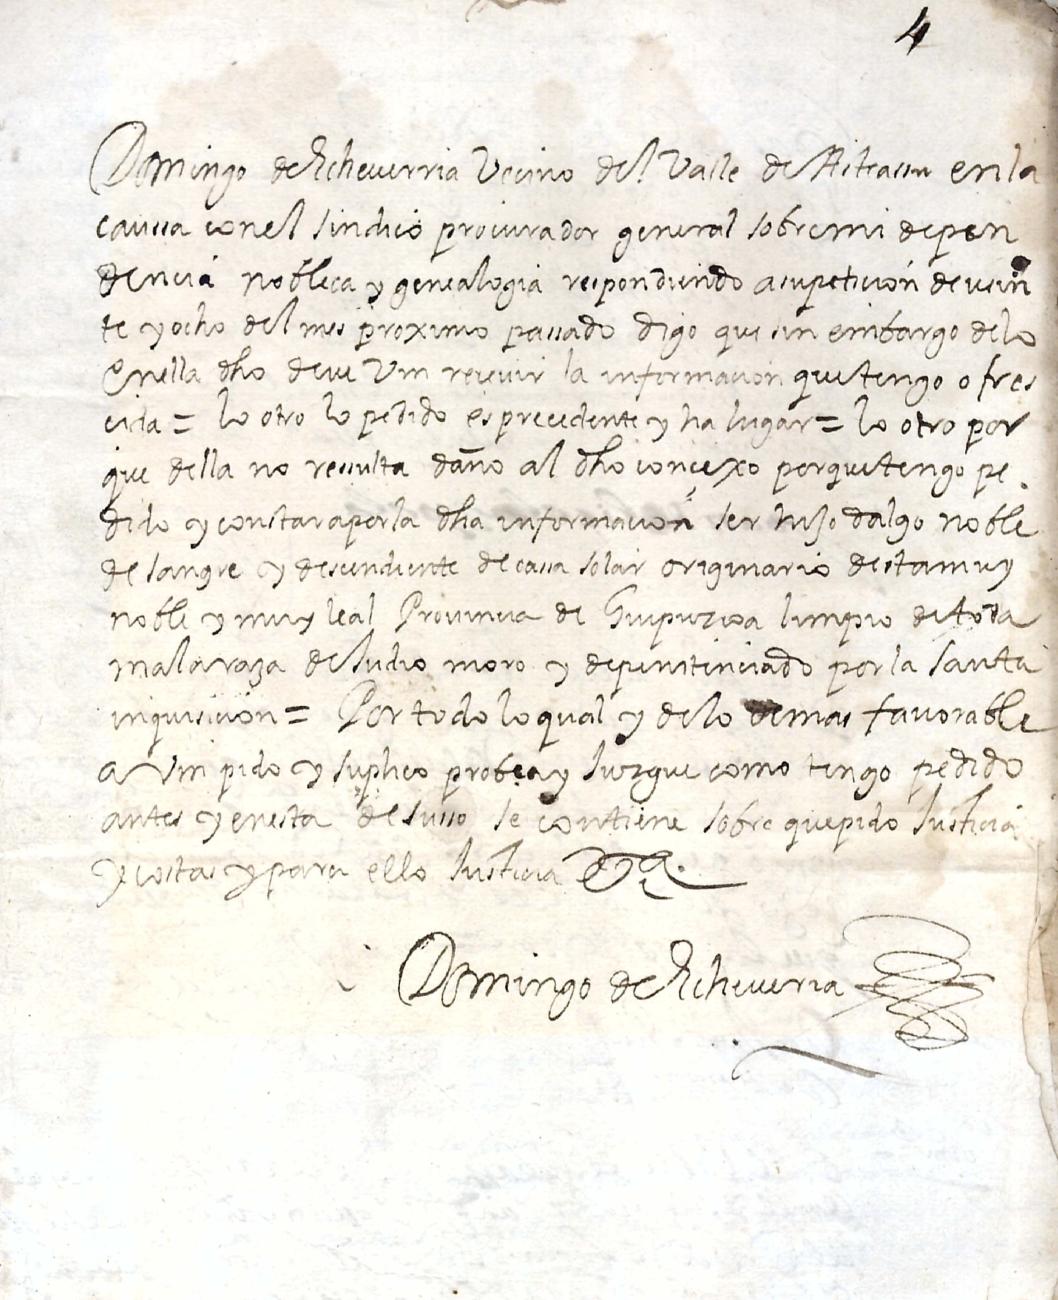 4
Domingo de Echeverria Vecino del Valle de Aistrassu en la
caussa con el sindico procurador general sobre mi depen
dencia nobleca y genealogia respondiendo a su peticion de vein
te y ocho del mes proximo passado digo que sin embargo de lo
en ella dho deve Vm recevir la informacion que tengo ofres
cida = lo otro lo pedido es precedente y ha lugar = lo otro por
que della no ressulta daño al dho concexo porque tengo pe
dido y constara por la dha informacion ser hijo dalgo noble
de sangre y descendiente de cassa solar originario desta muy
noble y muy leal Provincia de Guipuzcoa limpio de toda
mala raza de Judio moro y de penitenciado por la santa
inquisicion = Por todo lo qual y de lo demas favorable
a Vm pido y suplico probea y Juzgue como tengo pedido
antes y en esta de susso se contiene sobre que pido Justicia
y costas y para ello Justicia &a.
Domingo de Echeverria